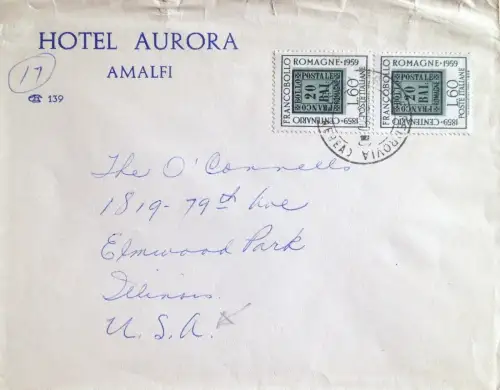 HOTEL AURORA
AMALFI
17
☎ 139
FRANCOBOLLO ROMAGNE·1959
BOLLO POSTALE
20
BAJ
FRANCO
L.60
POSTE ITALIANE
1859-CENTENARIO
FRANCOBOLLO ROMAGNE·1959
BOLLO POSTALE
20
BAJ
FRANCO
L.60
POSTE ITALIANE
1859-CENTENARIO
The O'Connells
1819-79th Ave
Elmwood Park
Illinois.
U.S.A.